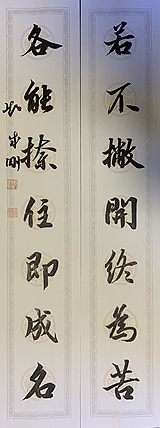 若不撇開終為苦
各能捺住即成名